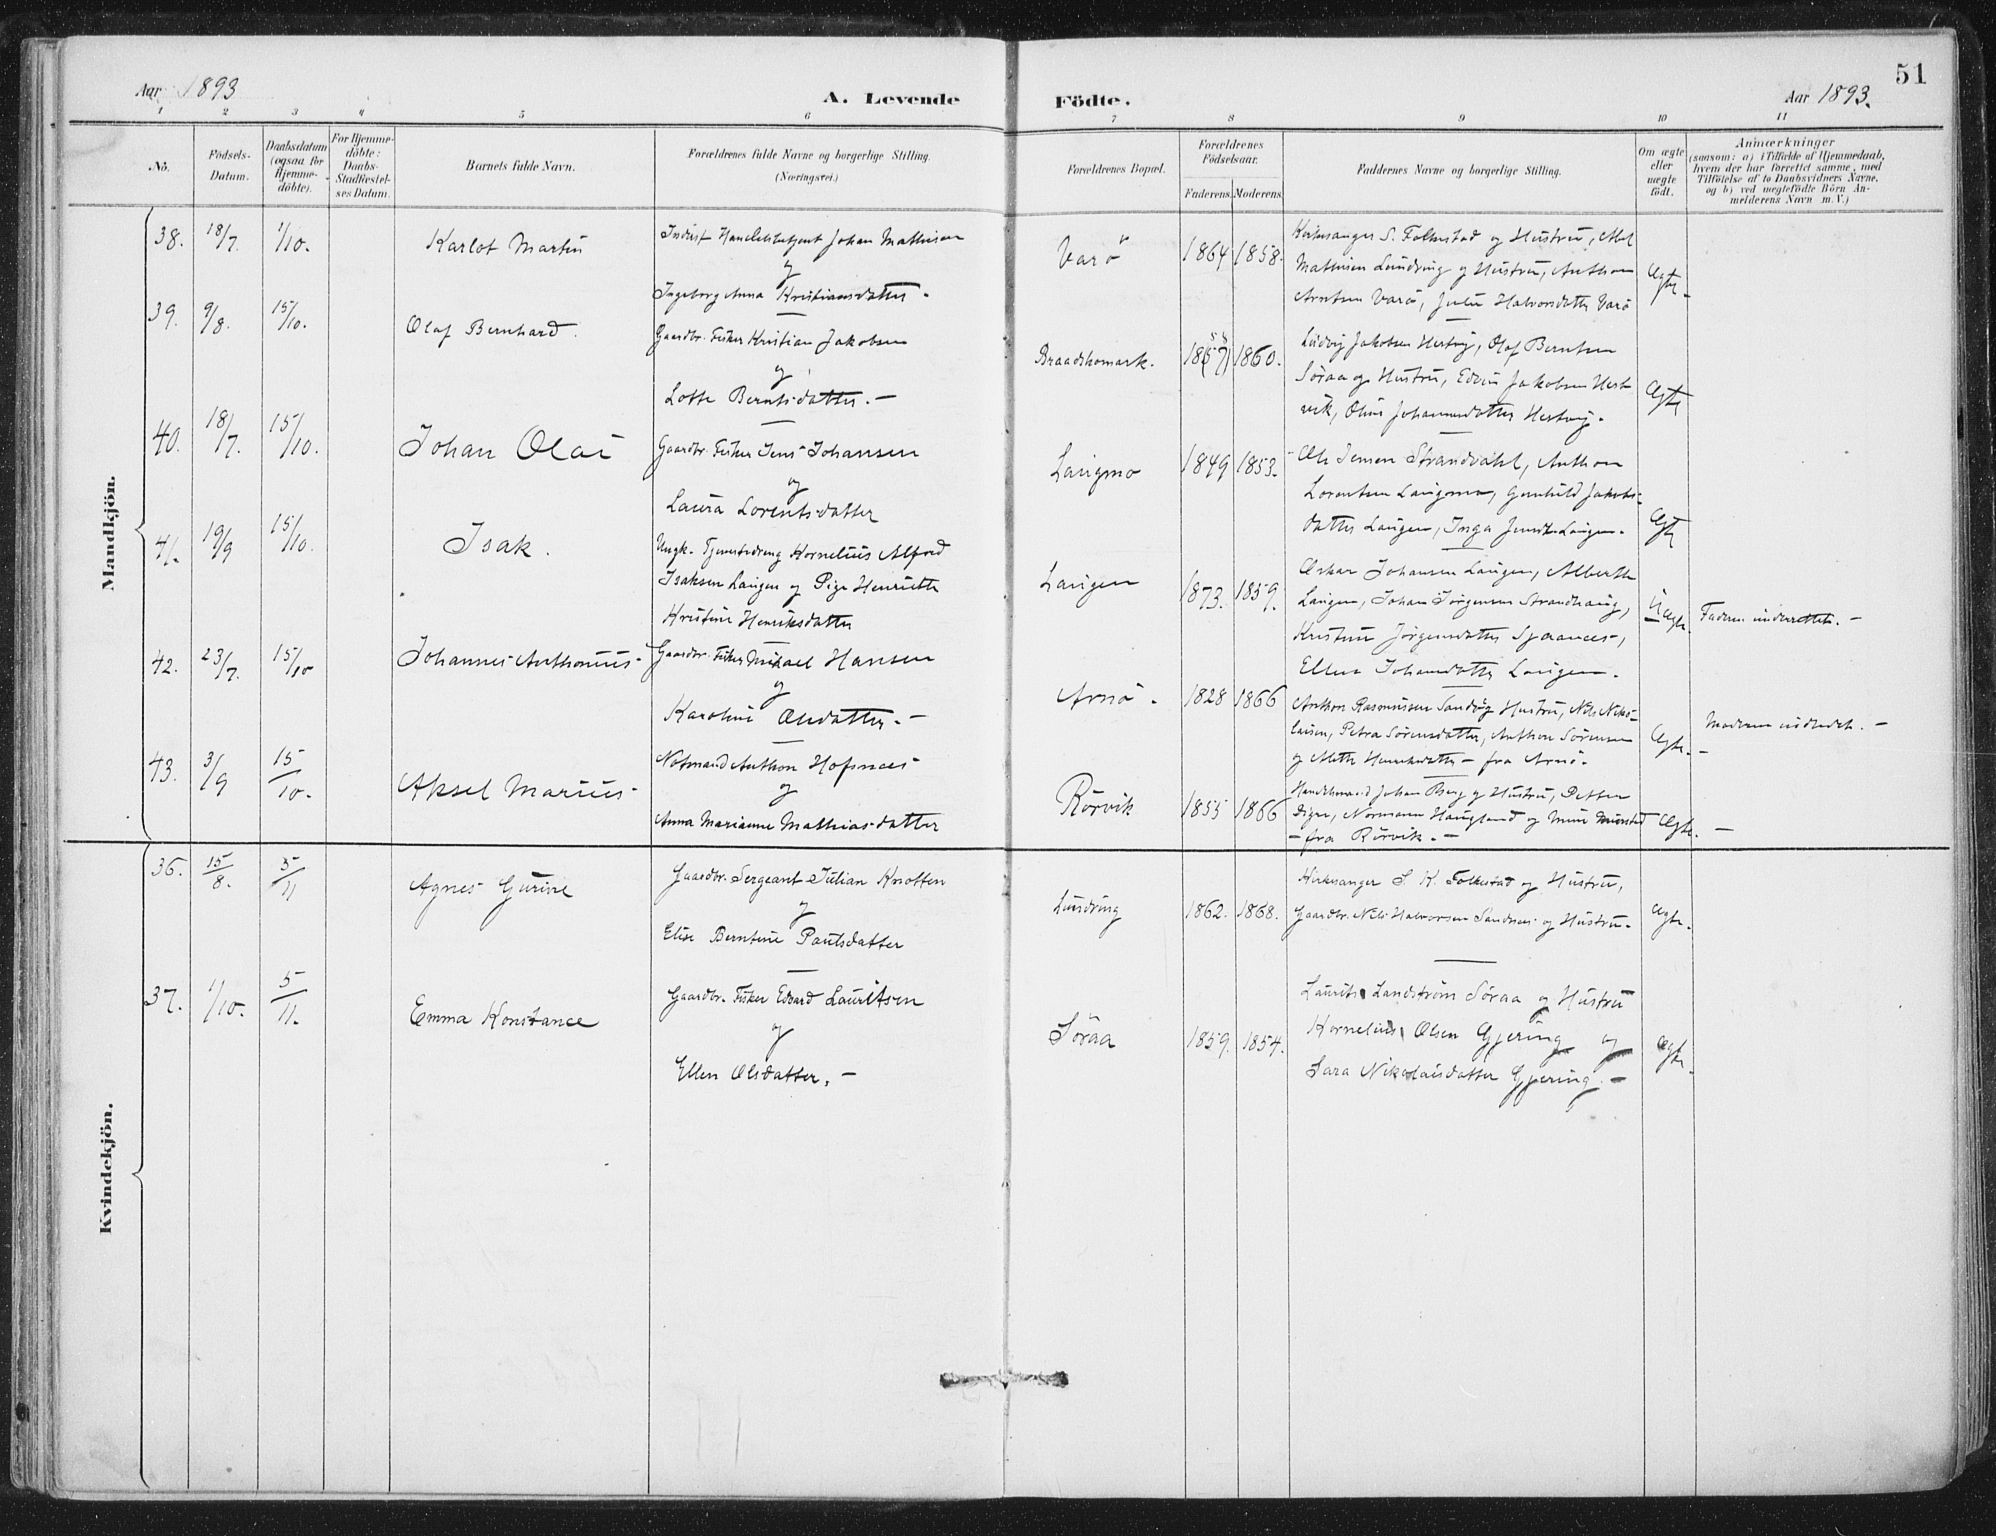 51
Aar 1893
A. Levende Födte.
Aar 1893.
1 2 3 4 5 6 7 8 9 10 11
No.
Födsels-Datum.
Daabsdatum (ogsaa for Hjemme-döbte).
For Hjemme-döbte: Daabs-Stadfæstel-ses Datum.
Barnets fulde Navn.
Forældrenes fulde Navne og borgerlige Stilling.
(Næringsvei.)
Forældrenes Bopæl.
Forældrenes Födselsaar.
Faderens Moderens
Faddernes Navne og borgerlige Stilling.
Om ægte eller uægte födt.
Anmærkninger
(saasom: a) i Tilfælde af Hjemmedaab,
hvem der har forrettet samme, med
Tilföielse af to Daabsvidners Navne,
og b) ved uægtefödte Börn An-
melderens Navn m. V.)
Mandkjön.
38. 18/7 1/10. Karlot Martin
Johan Mathisen
og
Ingeborg Anna Kristiansdatter.
Varö 1864 1858.
Kirkesanger S. Folkestad og Hustru,
Mathisen Lundring og Hustru, Anthon
Arntsen Varö, Julie Halvorsdatter Varö
Ægte.
39. 9/8. 15/10. Olaf Bernhard.
Gaardbr. Fisker Kristian Jakobsen
og
Lotte Berntsdatter. —
Braadskomark. 1860.
Ludvig Jakobsen Hestvig, Olaf Berntsen
Söraa og Hustru, Edvin Jakobsen Hest
vik, Oline Johannesdatter Hestvig.
Ægte
40. 18/7. 15/10. Johan Olai
Gaardbr. Fisker Jens Johansen
og
Laura Lorentsdatter
Laugmo 1849 1853.
Ole Jensen Strandvahl, Anthon
Lorentsen Laugmo, Gunhild Jakobs-
datter Laugen, Inga Laugen.
Ægte
41. 19/9 15/10. Isak.
Ungk. Tjenestedreng Kornelius Alfred
Isaksen Laugen og Pige Henriette
Kristine Henriksdatter
Laugen 1873. 1859.
Oskar Johansen Laugen, Alberth
Laugen, Johan Jörgensen Strandhaug,
Kristine Jörgensdatter
Ellen Johansdatter Laugen.
Uægte.
Faderen underrettet. —
42. 23/7. 15/10 Johannes Anthonius
Gaardbr. Fisker Mikael Hansen
og
Karoline Olsdatter. —
Arnö. 1828 1866
Anthon Rasmussen Sandvig Hustru, Nils Niko-
laisen, Petra Sörensdatter, Anthon Sörensen
og Mette Henriksdatter — fra Arnö.
Ægte. —
Moderen indledet. —
43. 3/9 15/10. Aksel Marius
Notmand Anthon Hofnæs
og
Anna Marianne Mathiasdatter
Rörvik 1855 1866
Handelsmand Johan Berg og Hustru, Petter
Normann Haugland og
— fra Rörvik. —
Ægte. —
Kvindekjön.
36. 15/8. 5/11 Agnes Gurine
Gaardbr. Sergeant Julian Knotten
og
Elise Berntine Paulsdatter
Lundring 1862. 1868.
Kirkesanger S. K. Folkestad og Hustru,
Gaardbr. Nils Halvorsen Sandnes og Hustru.
Ægte.
37. 1/10. 5/11. Emma Konstance
Gaardbr. Fisker Edvard Lauritsen
og
Ellen Olsdatter. —
Söraa 1859. 1854.
Laurits Landström Söraa og Hustru
Kornelius Olsen Gjering og
Sara Nikolaisdatter Gjering. —
Ægte.